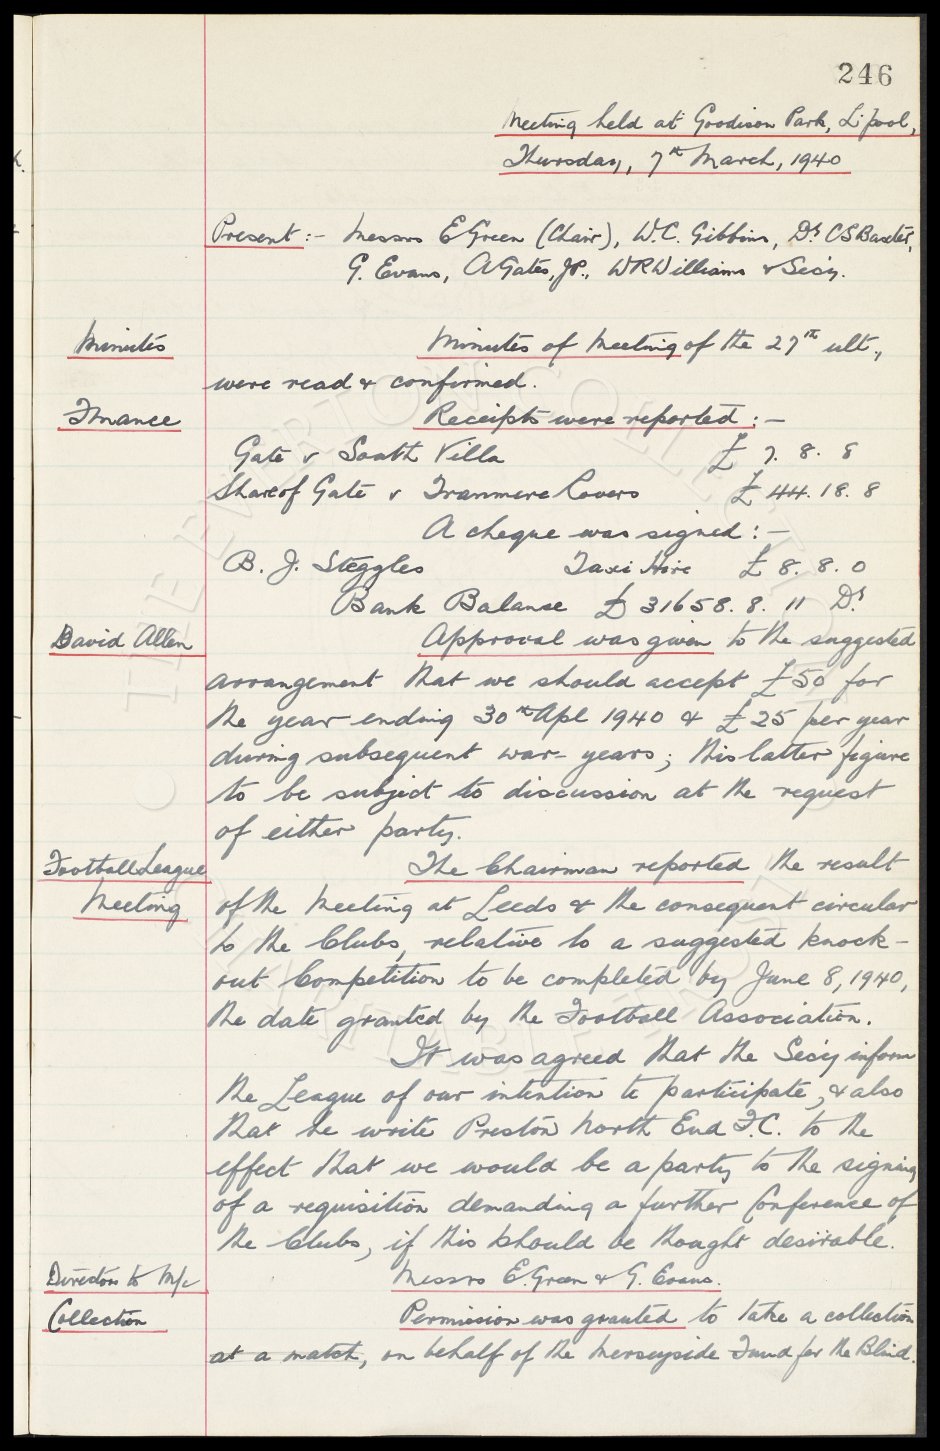 246
Meeting held at Goodison Park, L'pool,
Thursday, 7th March, 1940
Present :- Messrs E Green (Chair), W.C. Gibbins, Dr CS Baxter,
G. Evans, A Gates, JP., WR Williams & Sec'y.
Minutes Minutes of Meeting of the 27th ult.,
were read & confirmed.
Finance Receipts were reported :-
Gate v South Villa £ 7. 8. 8
Share of Gate v Tranmere Rovers £ 44. 18. 8
A cheque was signed :-
B. J. Steggles Taxi Hire £ 8. 8. 0
Bank Balance £ 31658. 8. 11 Dr
David Allen Approval was given to the suggested
arrangement that we should accept £50 for
the year ending 30th Apl 1940 & £25 per year
during subsequent war-years; this latter figure
to be subject to discussion at the request
of either party.
Football League The Chairman reported the result
Meeting of the Meeting at Leeds & the consequent circular
to the Clubs, relative to a suggested knock-
out Competition to be completed by June 8, 1940,
the date granted by the Football Association.
It was agreed that the Sec'y inform
the League of our intention to participate, & also
that he write Preston North End F.C. to the
effect that we would be a party to the signing
of a requisition demanding a further Conference of
the Clubs, if this should be thought desirable.
Directors to M/c Messrs E. Green & G. Evans.
Collection Permission was granted to take a collection
at a match, on behalf of the Merseyside Fund for the Blind.